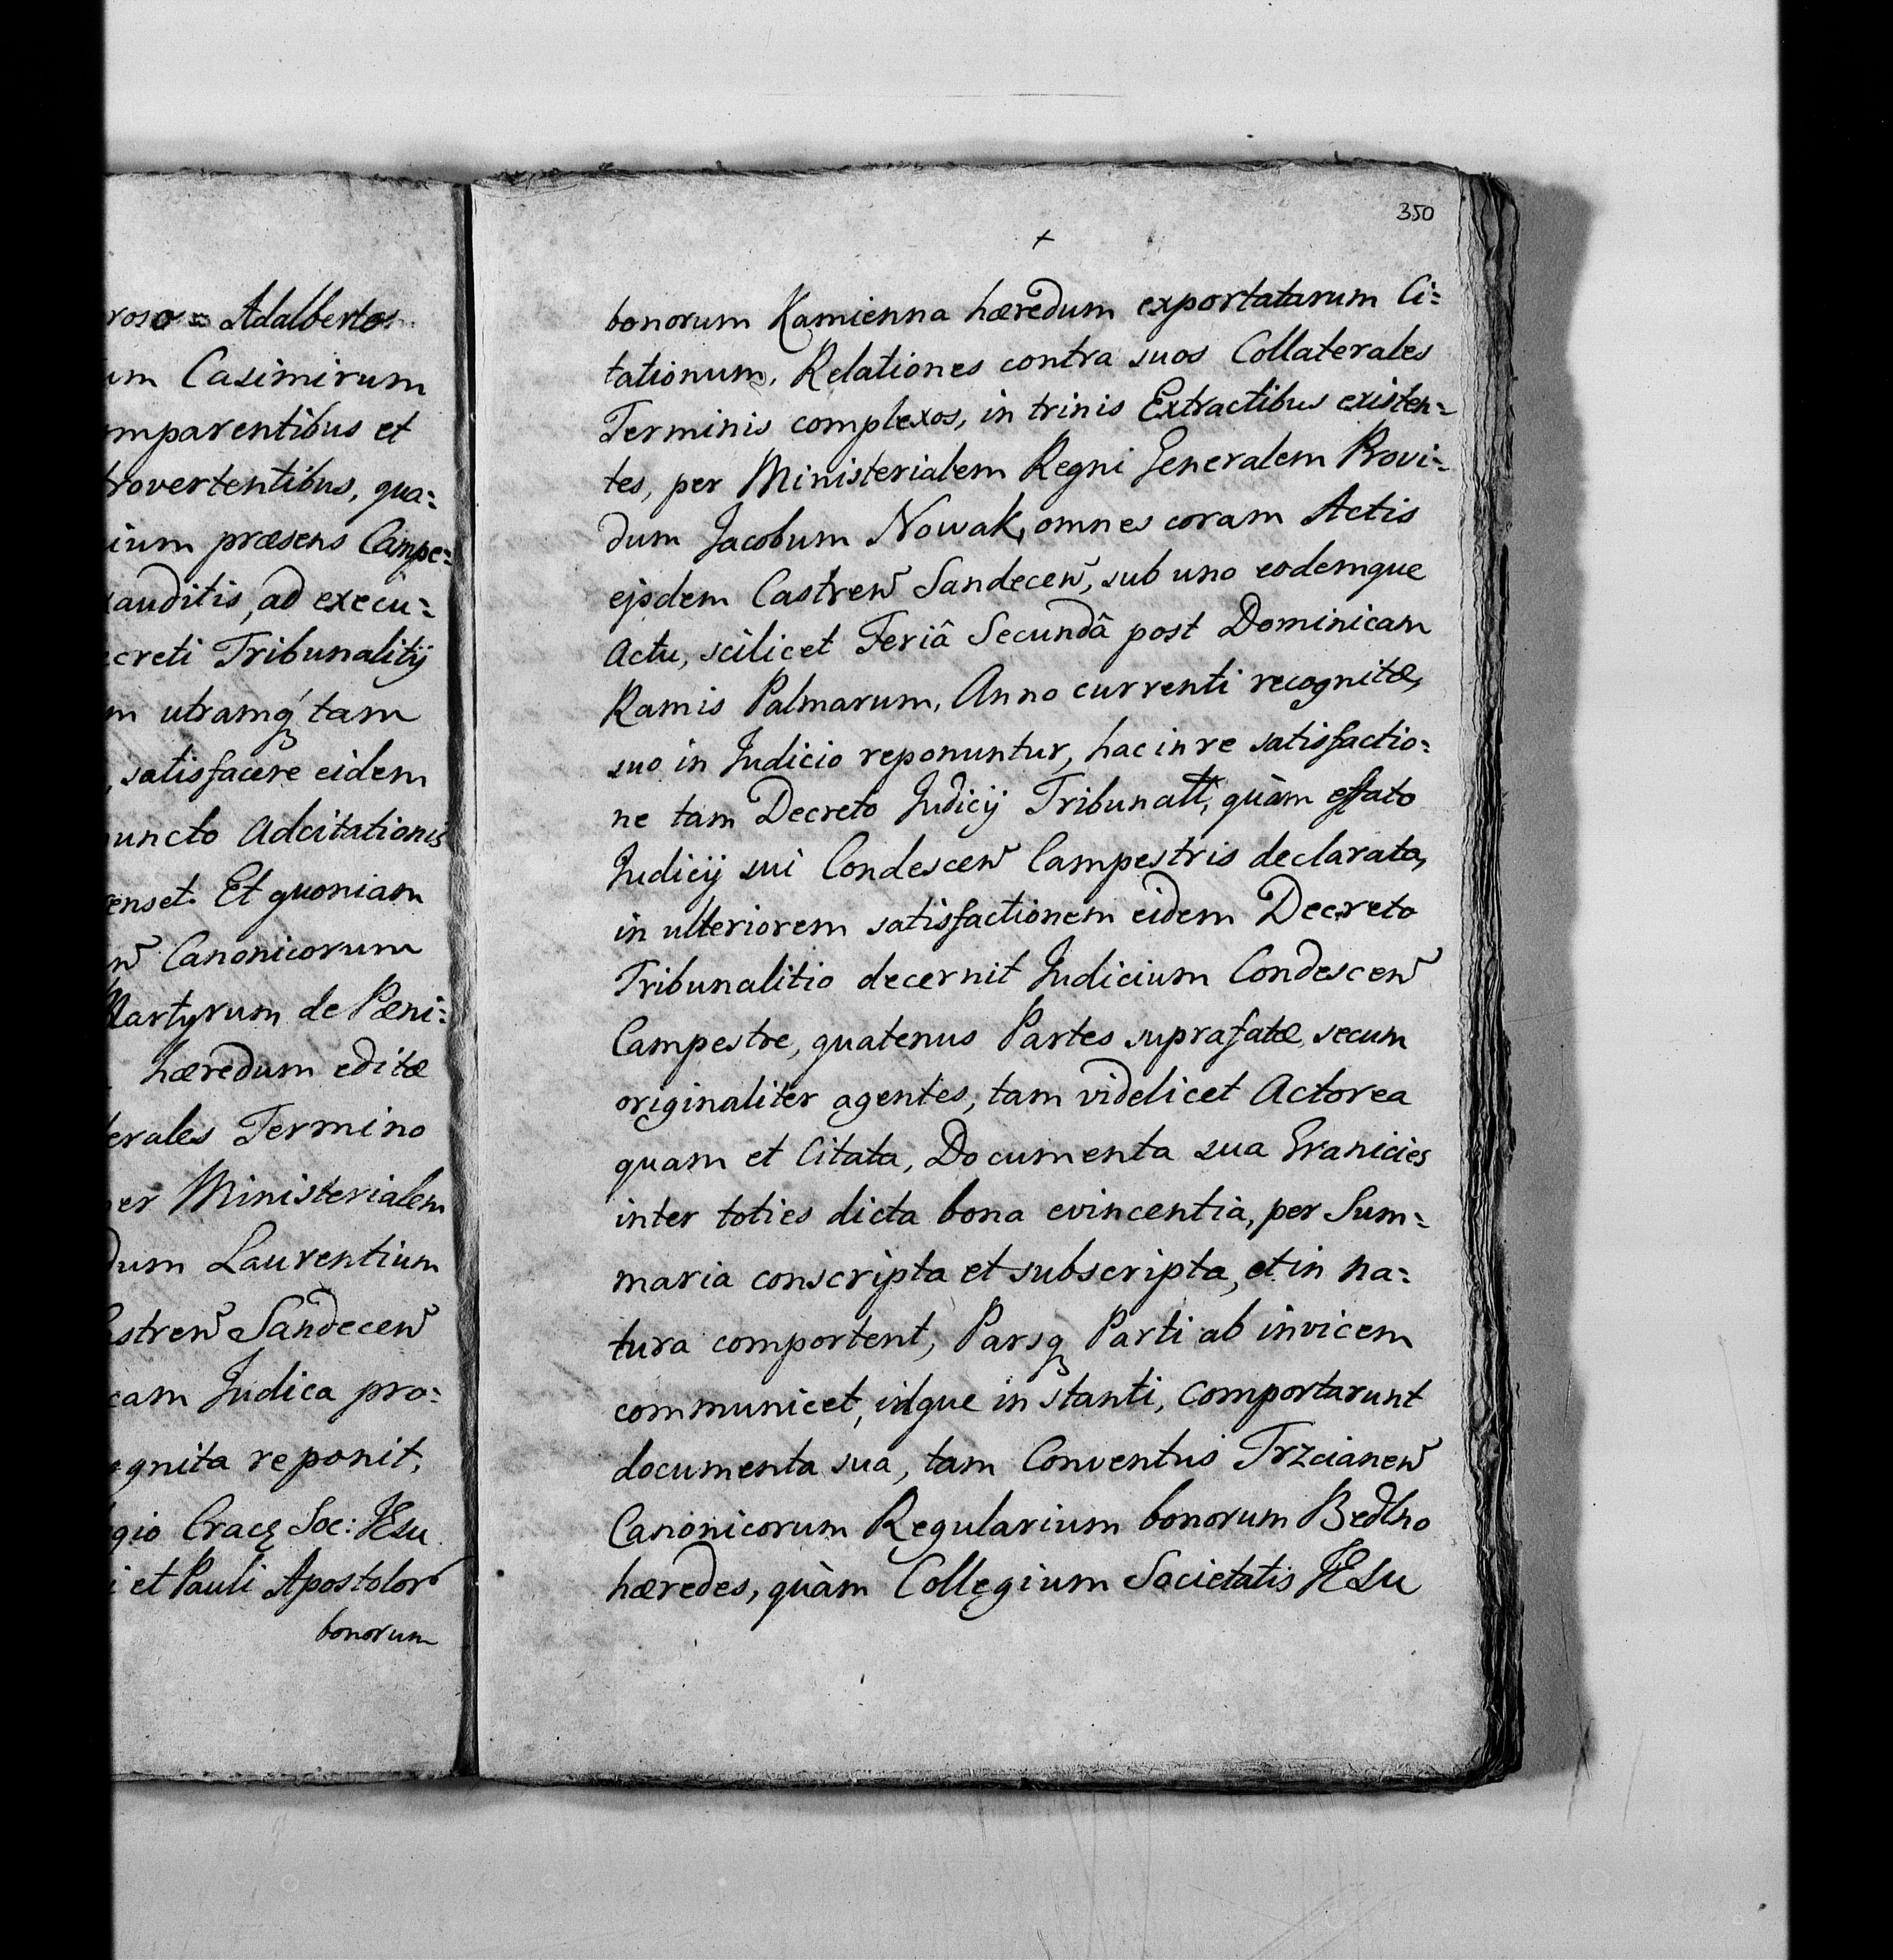 roso = Adalberto
um Casimirum
mparentibus et
rovertentibus, qua=
ium præsens Campe=
auditis, ad execu=
creti Tribunalitij
m utramq́ꝫ tam
, satisfacere eidem
uncto Adcitationis
enset. Et quoniam
Canonicorum
Martyrum de Pæni=
hæredum editæ
erales Termino
er Ministerialem
dum Laurentium
stren̄ Sandecen̄
cam Judica pro=
gnita reponit,
gio Cracȩ Soc: JEsu
i et Pauli Apostolor
bonorum
350
+
bonorum Kamienna hæredum exportatarum Ci=
tationum, Relationes contra suos Collaterales
Terminis complexos, in trinis Extractibus existen=
tes, per Ministerialem Regni Generalem Provi=
dum Jacobum Nowak, omnes coram Actis
ejsdem Castren̄ Sandecen̄, sub uno eodemque
Actu, scilicet Feriâ Secundâ post Dominicam
Ramis Palmarum, Anno currenti recognitæ,
suo in Judicio reponuntur, hac in re satisfactio=
ne tam Decreto Judicij Tribunall, quàm effato
Judicij sui Condescen̄ Campestris declarata,
in ulteriorem satisfactionem eidem Decreto
Tribunalitio decernit Judicium Condescen̄
Campestre, quatenus Partes suprafatæ, secum
originaliter agentes, tam videlicet Actorea
quam et Citata, Documenta sua Granicies
inter toties dicta bona evincentia, per Sum=
maria conscripta et subscripta, et in na=
tura comportent, Parsqꝫ Parti ab invicem
communicet, idque in stanti, comportarunt
documenta sua, tam Conventus Trzcianen̄
Canonicorum Regularium bonorum Bedlno
hæredes, quàm Collegium Societatis JEsu